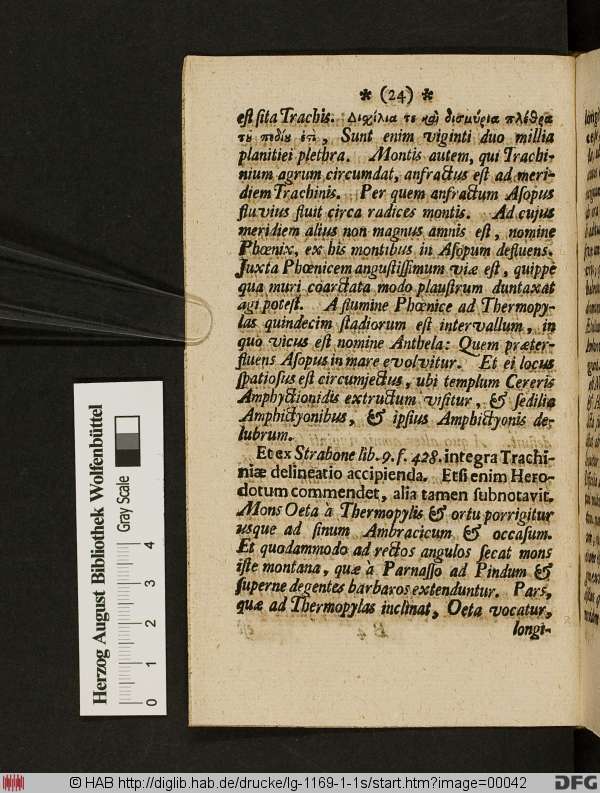 * (24) *
eſt ſita Trachis. Διχίλια τε καὶ δισμύρια πλέθρα
τȣ πεδίȣ ἐϛὶ, Sunt enim viginti duo millia
planitiei plethra. Montis autem, qui Trachi-
nium agrum circumdat, anfractus eſt ad meri-
diem Trachinis. Per quem anfractum Aſopus
fluvius fluit circa radices montis. Ad cujus
meridiem alius non magnus amnis eſt, nomine
Phœnix, ex his montibus in Aſopum defluens.
Juxta Phœnicem anguſtiſſimum viæ eſt, quippe
qua muri coarctata modo plauſtrum duntaxat
agi poteſt. A flumine Phœnice ad Thermopy-
las quindecim ſtadiorum eſt intervallum, in
quo vicus eſt nomine Anthela: Quem præter-
fluens Aſopus in mare evolvitur. Et ei locus
ſpatioſus eſt circumjectus, ubi templum Cereris
Amphyctionidis extructum viſitur, & ſedilia
Amphictyonibus, & ipſius Amphictyonis de-
lubrum.
Et ex Strabone lib. 9. f. 428. integra Trachi-
niæ delineatio accipienda. Etſi enim Hero-
dotum commendet, alia tamen ſubnotavit.
Mons Oeta à Thermopylis & ortu porrigitur
usque ad ſinum Ambracicum & occaſum.
Et quodammodo ad rectos angulos ſecat mons
iſte montana, quæ à Parnaſſo ad Pindum &
ſuperne degentes barbaros extenduntur. Pars,
quæ ad Thermopylas inclinat, Oeta vocatur,
longi-
Herzog August Bibliothek Wolfenbüttel
Gray Scale
0 1 2 3 4
© HAB http://diglib.hab.de/drucke/lg-1169-1-1s/start.htm?image=00042
DFG